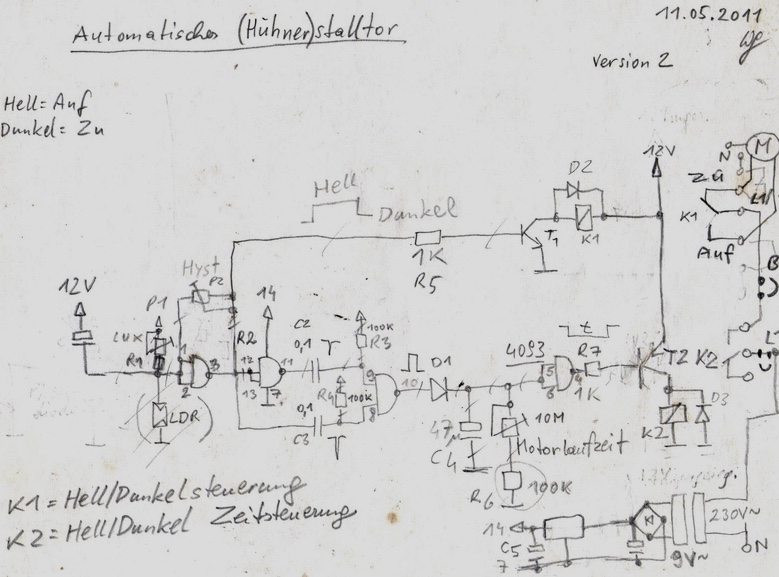 11.05.2011
Automatisches (Hühner)stalltor
Version 2
Hell = Auf
Dunkel = Zu
12V
N
M
D2
Zu
L1
Hell
Dunkel
K1
T1
K1
Auf
1K
R5
B
Hyst
P2
12V
P1
14
C2
LUX
R2
0,1
100K
R3
R1
1
3
12
11
4093
t
R7
2
13
7
R4
100K
9
10
D1
5
4
T2
K2
LDR
8
6
1K
0,1
C3
47µ
C4
10M
Motorlaufzeit
D3
K2
K1 = Hell/Dunkelsteuerung
R6
100K
K2 = Hell/Dunkel Zeitsteuerung
14
230V~
C5
7
9V~
N